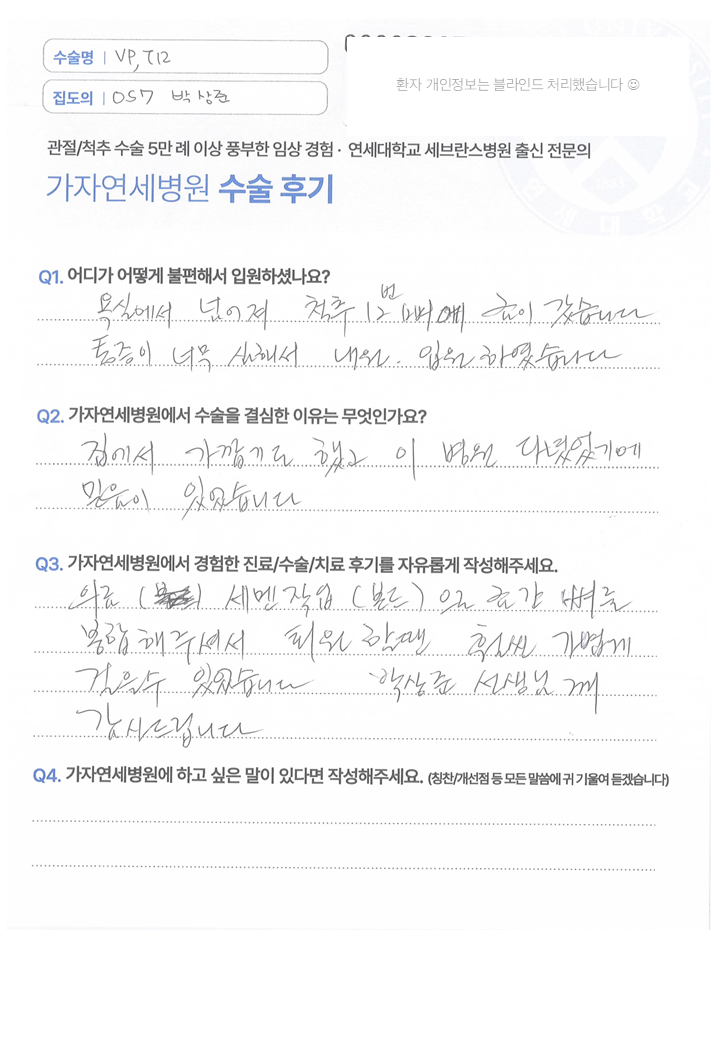 수술명 | VP, T12
환자 개인정보는 블라인드 처리했습니다 ☺
집도의 | OS7 박상준
관절/척추 수술 5만 례 이상 풍부한 임상 경험 · 연세대학교 세브란스병원 출신 전문의
가자연세병원 수술 후기
Q1. 어디가 어떻게 불편해서 입원하셨나요?
욕실에서 넘어져 척추 12번 뼈에 금이 갔습니다
통증이 너무 심해서 내원. 입원하였습니다
Q2. 가자연세병원에서 수술을 결심한 이유는 무엇인가요?
집에서 가깝기도 했고 이 병원 다녔었기에
믿음이 있었습니다
Q3. 가자연세병원에서 경험한 진료/수술/치료 후기를 자유롭게 작성해주세요.
의료 ( ) 세멘작업 (본드) 으로 금간 뼈를
봉합해주셔서 퇴원 할땐 훨씬 가볍게
걸을수 있었습니다 박상준 선생님 께
감사드립니다
Q4. 가자연세병원에 하고 싶은 말이 있다면 작성해주세요. (칭찬/개선점 등 모든 말씀에 귀 기울여 듣겠습니다)